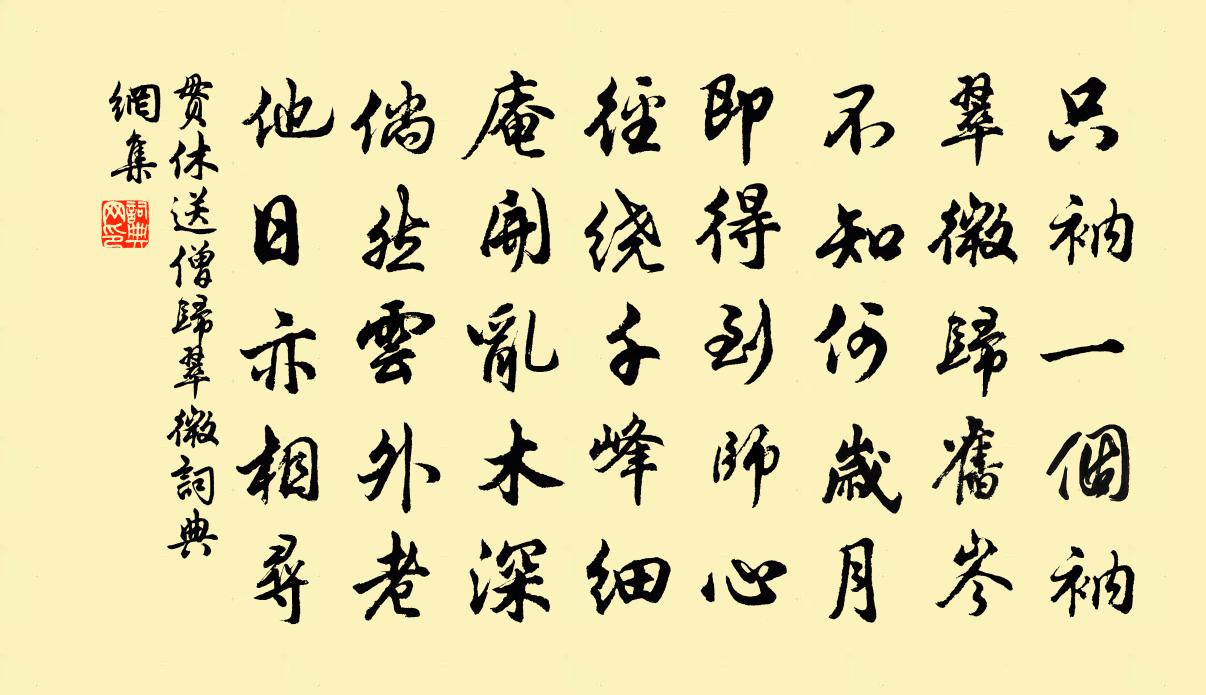 只衲一個衲
翠微歸舊岑
不知何歲月
即得到師心
徑繞千峰細
庵開亂木深
倘然雲外老
他日亦相尋
貫休送僧歸翠微詞典
網集
詞典網印